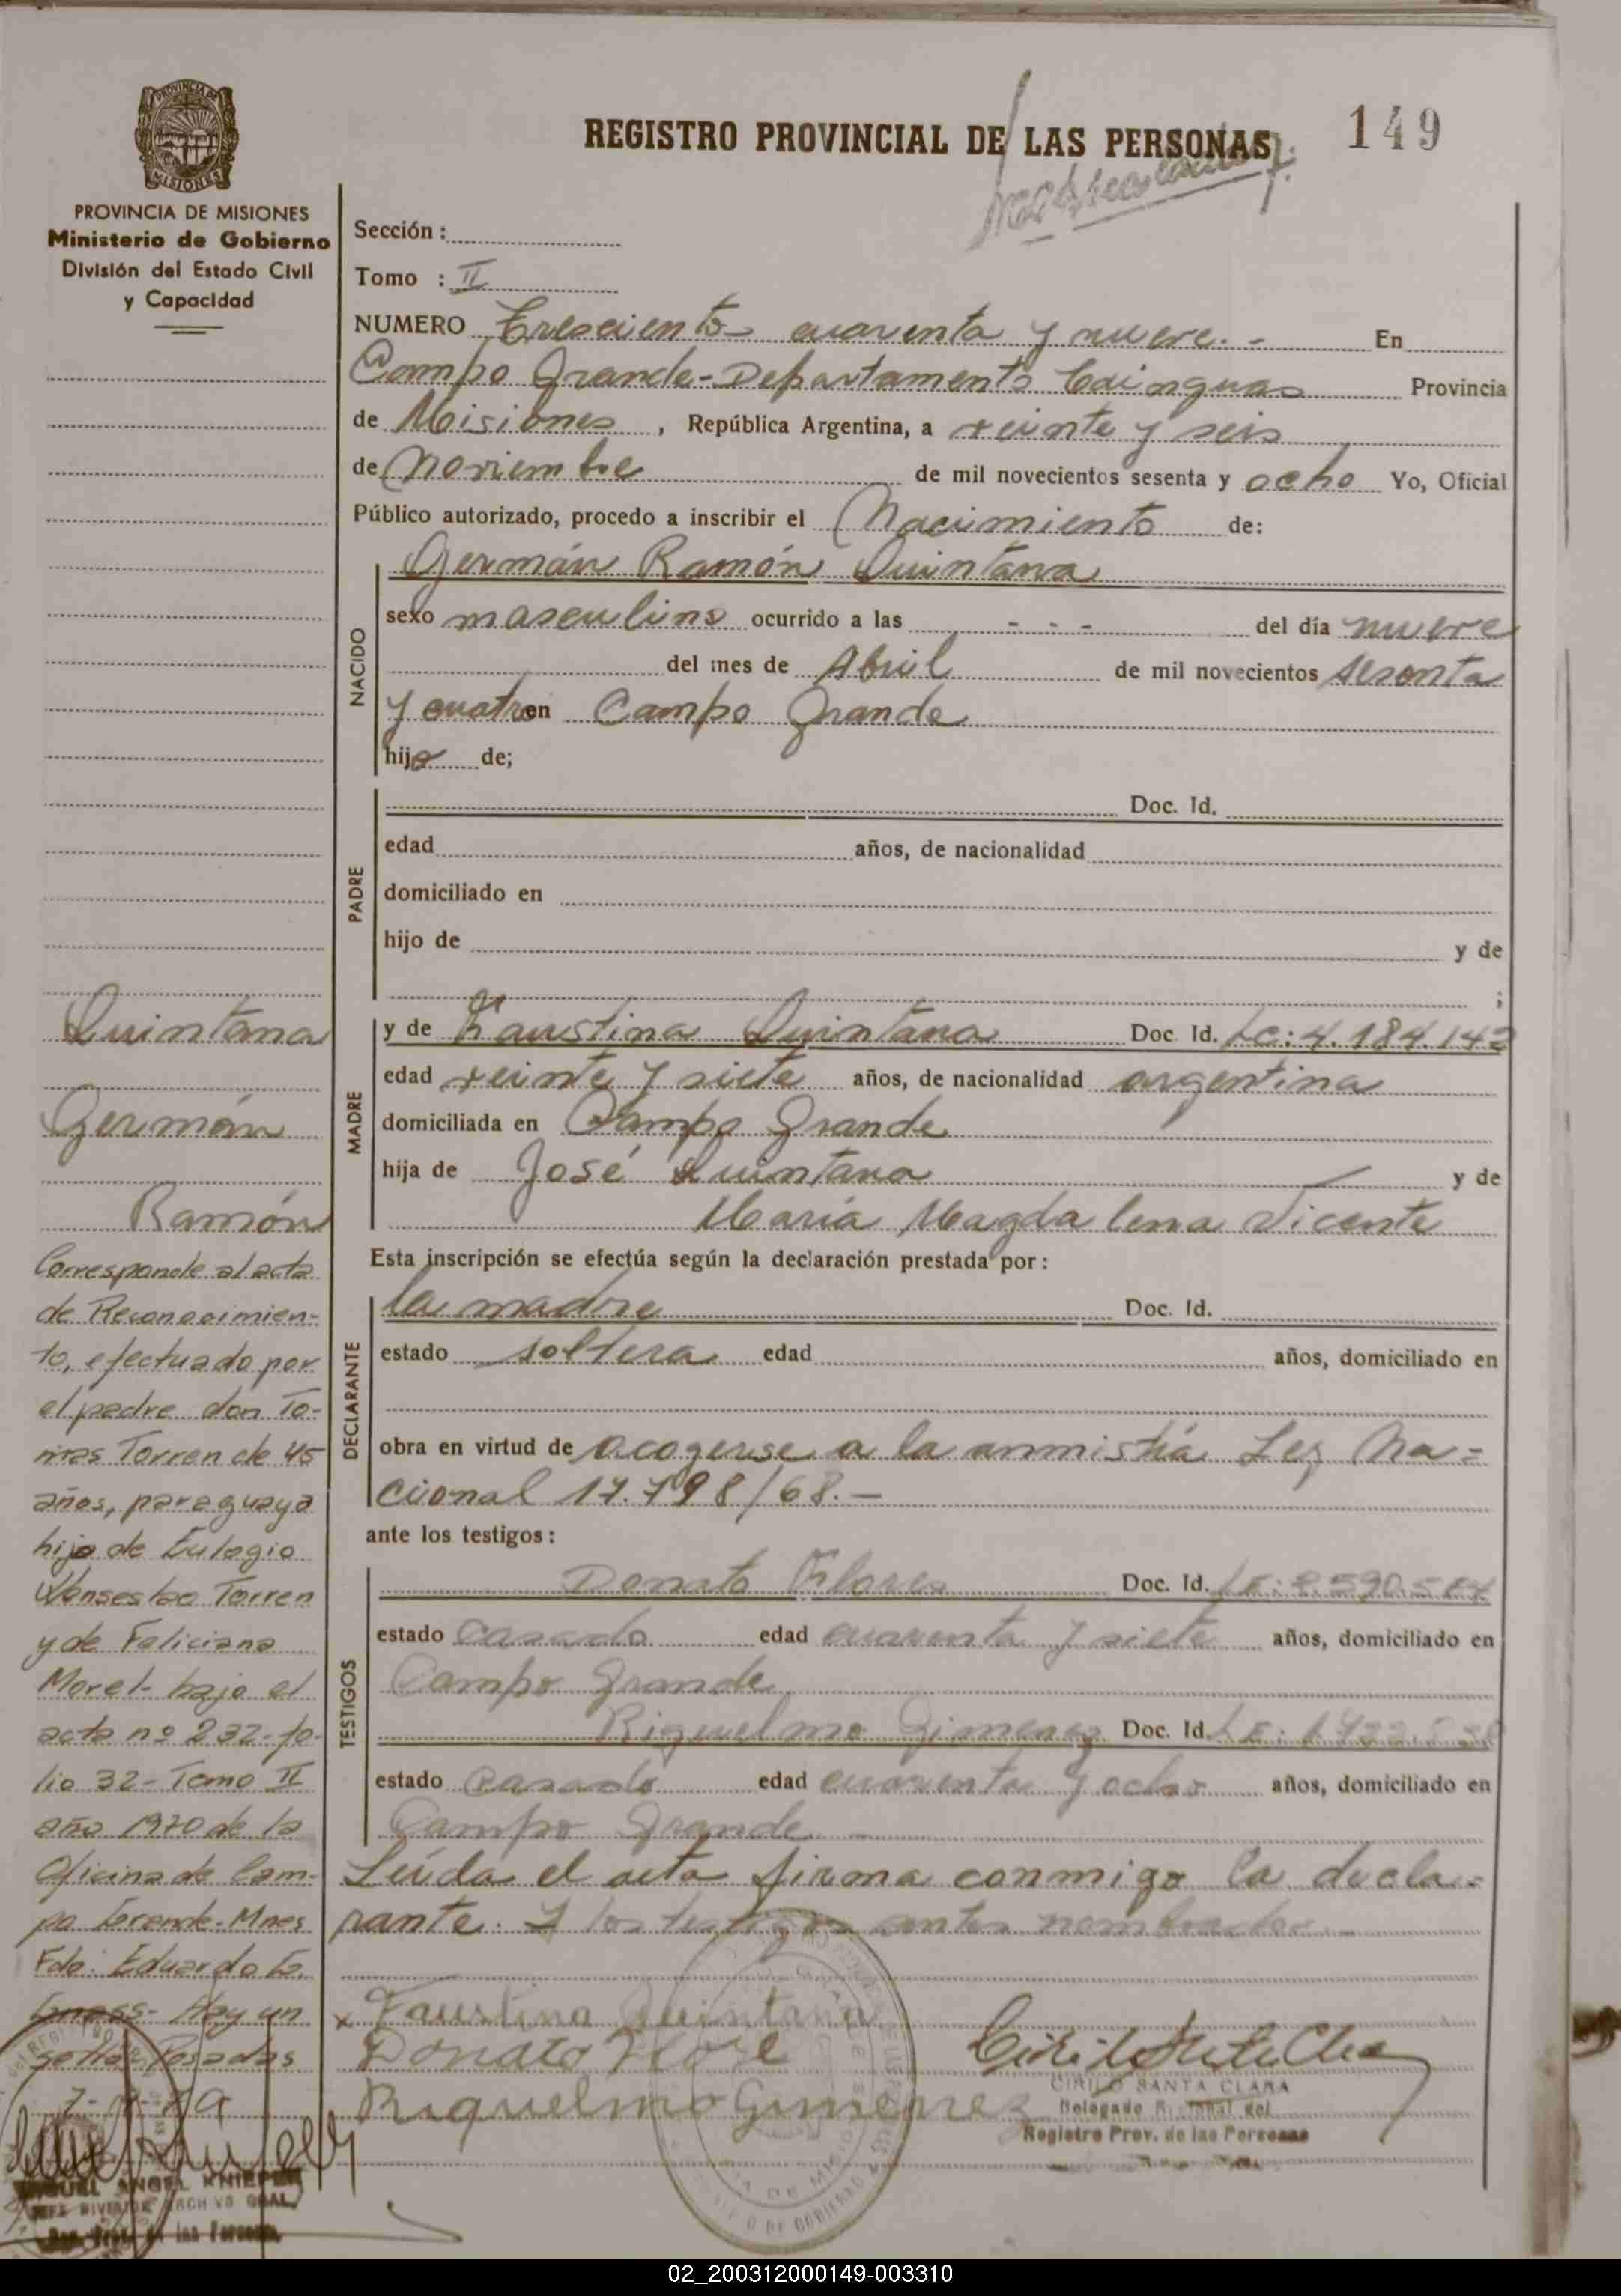 149
REGISTRO PROVINCIAL DE LAS PERSONAS
PROVINCIA DE MISIONES
Ministerio de Gobierno
División del Estado Civil
y Capacidad
Sección :
Tomo : II
NUMERO Trescientos cuarenta y nueve. - En
Campo Grande - Departamento Cainguas Provincia
de Misiones , República Argentina, a veinte y seis
de Noviembre de mil novecientos sesenta y ocho Yo, Oficial
Público autorizado, procedo a inscribir el Nacimiento de:
NACIDO
Germán Ramón Quintana
sexo masculino ocurrido a las - - - del día nueve
del mes de Abril de mil novecientos sesenta
y cuatro en Campo Grande
hijo de;
PADRE
Doc. Id.
edad años, de nacionalidad
domiciliado en
hijo de y de
;
MADRE
y de Faustina Quintana Doc. Id. LC: 4.184.142
edad veinte y siete años, de nacionalidad argentina
domiciliada en Campo Grande
hija de José Quintana y de
María Magdalena Vicente
Esta inscripción se efectúa según la declaración prestada por :
DECLARANTE
la madre Doc. Id.
estado soltera edad años, domiciliado en
obra en virtud de acogerse a la amnistía Ley Na=
cional 17.798/68.-
ante los testigos :
TESTIGOS
Donato Flores Doc. Id. LE:
estado casado edad cuarenta y siete años, domiciliado en
Campo Grande
Riquelmo Gimenez Doc. Id. LE:
estado Casado edad cuarenta y ocho años, domiciliado en
Campo Grande
Leída el acta firma conmigo la decla=
rante. y los testigos antes nombrados
x Faustina Quintana
Donato Flore
Riquelmo Gimenez
CIRILO SANTA CLARA
Delegado
Registro Prov. de las Personas
Quintana
Germán
Ramón
Corresponde al acta
de Reconocimien-
to, efectuado por
el padre don To-
mas Torren de 45
años, paraguaya
hijo de Eulogio
Wenseslao Torren
y de Feliciana
Morel- bajo el
acta nº 232- fo-
lio 32- Tomo II
año 1970 de la
Oficina de Cam-
po Grande- Mnes
Fdo: Eduardo
Hay un
sello Posadas
MIGUEL ANGEL KNIEPER
JEFE DIVISION ARCHIVO GRAL
Reg. Prov. de las Personas
02_200312000149-003310